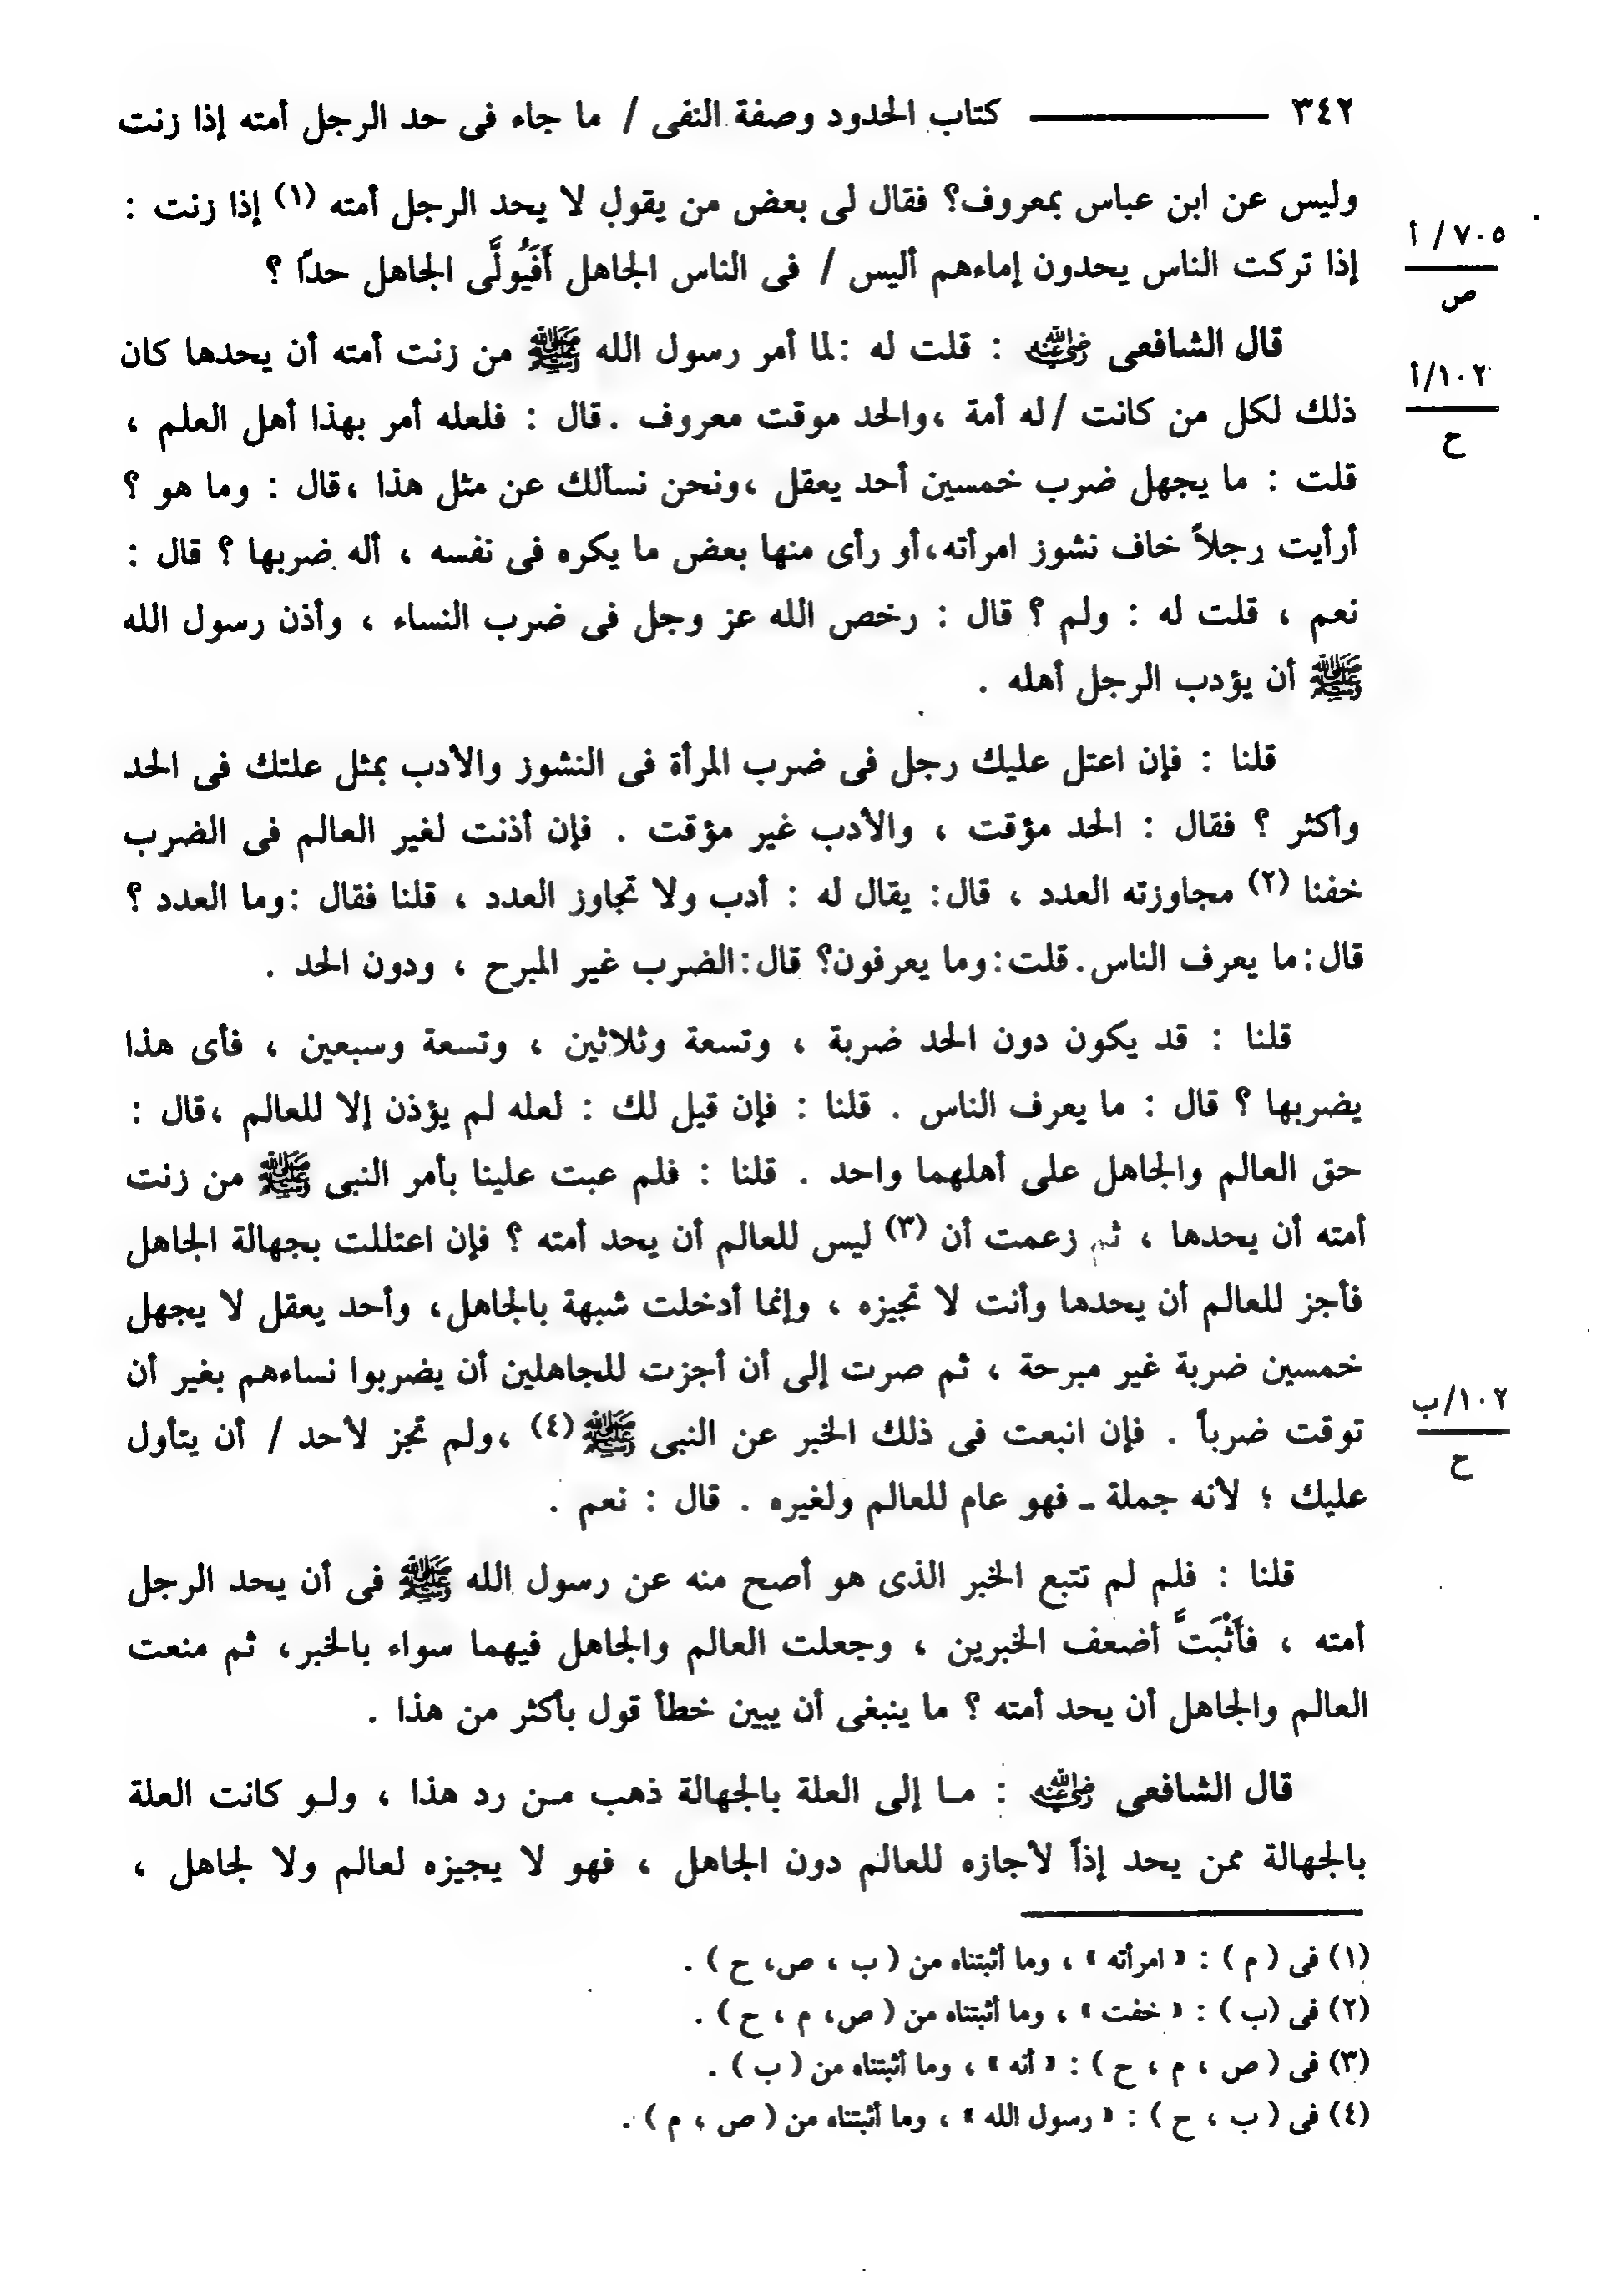 ٣٤٢ ــــــــ كتاب الحدود وصفة النفى / ما جاء فى حد الرجل أمته إذا زنت
وليس عن ابن عباس بمعروف؟ فقال لى بعض من يقول لا يحد الرجل أمته (١) إذا زنت :
٧٠٥/ أ
ص
إذا تركت الناس يحدون إماءهم أليس / فى الناس الجاهل أَفَيُولَّى الجاهل حدًا ؟
قال الشافعى رضي الله عنه : قلت له :لما أمر رسول الله ﷺ من زنت أمته أن يحدها كان
١٠٢/أ
ح
ذلك لكل من كانت /له أمة ،والحد موقت معروف .قال : فلعله أمر بهذا أهل العلم ،
قلت : ما يجهل ضرب خمسين أحد يعقل ،ونحن نسألك عن مثل هذا ،قال : وما هو ؟
أرأيت رجلاً خاف نشوز امرأته،أو رأى منها بعض ما يكره فى نفسه ، أله ضربها ؟ قال :
نعم ، قلت له : ولم ؟ قال : رخص الله عز وجل فى ضرب النساء ، وأذن رسول الله
ﷺ أن يؤدب الرجل أهله .
قلنا : فإن اعتل عليك رجل فى ضرب المرأة فى النشوز والأدب بمثل علتك فى الحد
وأكثر ؟ فقال : الحد مؤقت ، والأدب غير مؤقت . فإن أذنت لغير العالم فى الضرب
خفنا (٢) مجاوزته العدد ، قال: يقال له : أدب ولا تجاوز العدد ، قلنا فقال :وما العدد ؟
قال:ما يعرف الناس.قلت:وما يعرفون؟ قال:الضرب غير المبرح ، ودون الحد .
قلنا : قد يكون دون الحد ضربة ، وتسعة وثلاثين ، وتسعة وسبعين ، فأى هذا
يضربها ؟ قال : ما يعرف الناس . قلنا : فإن قيل لك : لعله لم يؤذن إلا للعالم ،قال :
حق العالم والجاهل على أهلهما واحد . قلنا : فلم عبت علينا بأمر النبى ﷺ من زنت
أمته أن يحدها ، ثم زعمت أن (٣) ليس للعالم أن يحد أمته ؟ فإن اعتللت بجهالة الجاهل
فأجز للعالم أن يحدها وأنت لا تجيزه ، وإنما أدخلت شبهة بالجاهل، وأحد يعقل لا يجهل
خمسين ضربة غير مبرحة ، ثم صرت إلى أن أجزت للجاهلين أن يضربوا نساءهم بغير أن
١٠٢/ب
ح
توقت ضرباً . فإن اتبعت فى ذلك الخبر عن النبى ﷺ (٤) ،ولم تجز لأحد / أن يتأول
عليك ؛ لأنه جملة ـ فهو عام للعالم ولغيره . قال : نعم .
قلنا : فلم لم تتبع الخبر الذى هو أصح منه عن رسول الله ﷺ فى أن يحد الرجل
أمته ، فأَثْبَتَّ أضعف الخبرين ، وجعلت العالم والجاهل فيهما سواء بالخبر، ثم منعت
العالم والجاهل أن يحد أمته ؟ ما ينبغى أن يبين خطأ قول بأكثر من هذا .
قال الشافعى رضي الله عنه : مـا إلى العلة بالجهالة ذهب مـن رد هذا ، ولـو كانت العلة
بالجهالة ممن يحد إذاً لأجازه للعالم دون الجاهل ، فهو لا يجيزه لعالم ولا لجاهل ،
(١) فى ( م ) : « امرأته » ، وما أثبتناه من ( ب ، ص، ح ) .
(٢) فى (ب ) : « خفت » ، وما أثبتناه من ( ص، م ، ح ) .
(٣) فى ( ص ، م ، ح ) : « أنه » ، وما أثبتناه من ( ب ) .
(٤) فى ( ب ، ح ) : « رسول الله » ، وما أثبتناه من ( ص ، م ) .